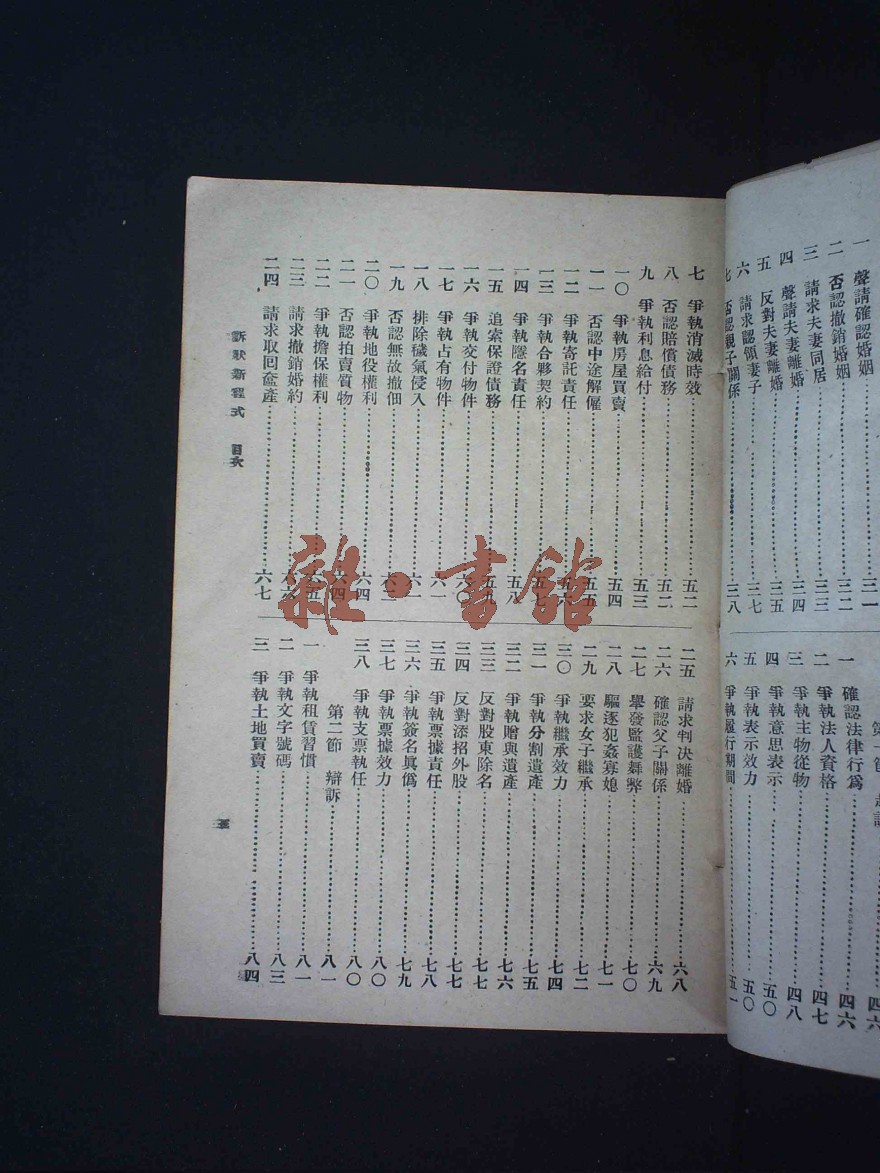 一 聲請確認婚姻 三一
二 否認撤銷婚姻 三二
三 請求夫妻同居 三三
四 聲請夫妻離婚 三四
五 反對夫妻離婚 三五
六 請求認領妻子 三七
七 否認親子關係 三八
第一節
四六
一 確認法律行爲 四六
二 爭執法人資格 四七
三 爭執主物從物 四八
四 爭執意思表示 五〇
五 爭執表示效力 五〇
六 爭執履行期間 五一
七 爭執消滅時效 五二
八 否認賠償債務 五二
九 爭執利息給付 五三
一〇 爭執房屋買賣 五四
一一 否認中途解僱 五五
一二 爭執寄託責任 五六
一三 爭執合夥契約 五七
一四 爭執隱名責任 五八
一五 追索保證債務 五九
一六 爭執交付物件 六〇
一七 爭執占有物件 六一
一八 排除穢氣侵入
一九 否認無故撤佃
二〇 爭執地役權利 六四
二一 否認拍賣質物 六四
二二 爭執擔保權利 六五
二三 請求撤銷婚約 六六
二四 請求取回奩產 六七
二五 請求判決離婚 六八
二六 確認父子關係 六九
二七 舉發監護舞弊 七〇
二八 驅逐犯姦寡媳 七一
二九 要求女子繼承 七二
三〇 爭執繼承效力 七四
三一 爭執分割遺產 七五
三二 爭執贈與遺產 七六
三三 反對股東除名 七七
三四 反對添招外股 七七
三五 爭執票據責任 七八
三六 爭執簽名眞僞 七九
三七 爭執票據效力 八〇
三八 爭執支票執任 八〇
第二節 辯訴 八一
一 爭執租賃習慣 八一
二 爭執文字號碼 八三
三 爭執土地買賣 八四
訴狀新程式 目次
三
雜·書館